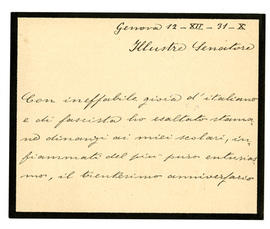 Genova 12 - XII - 31 - X
Illustre Senatore
Con ineffabile gioia d'italiano
e di fascista ho esaltato stama,
ne dinanzi ai miei scolari, in,
fiammati del più puro entusias
mo, il trentesimo anniversario